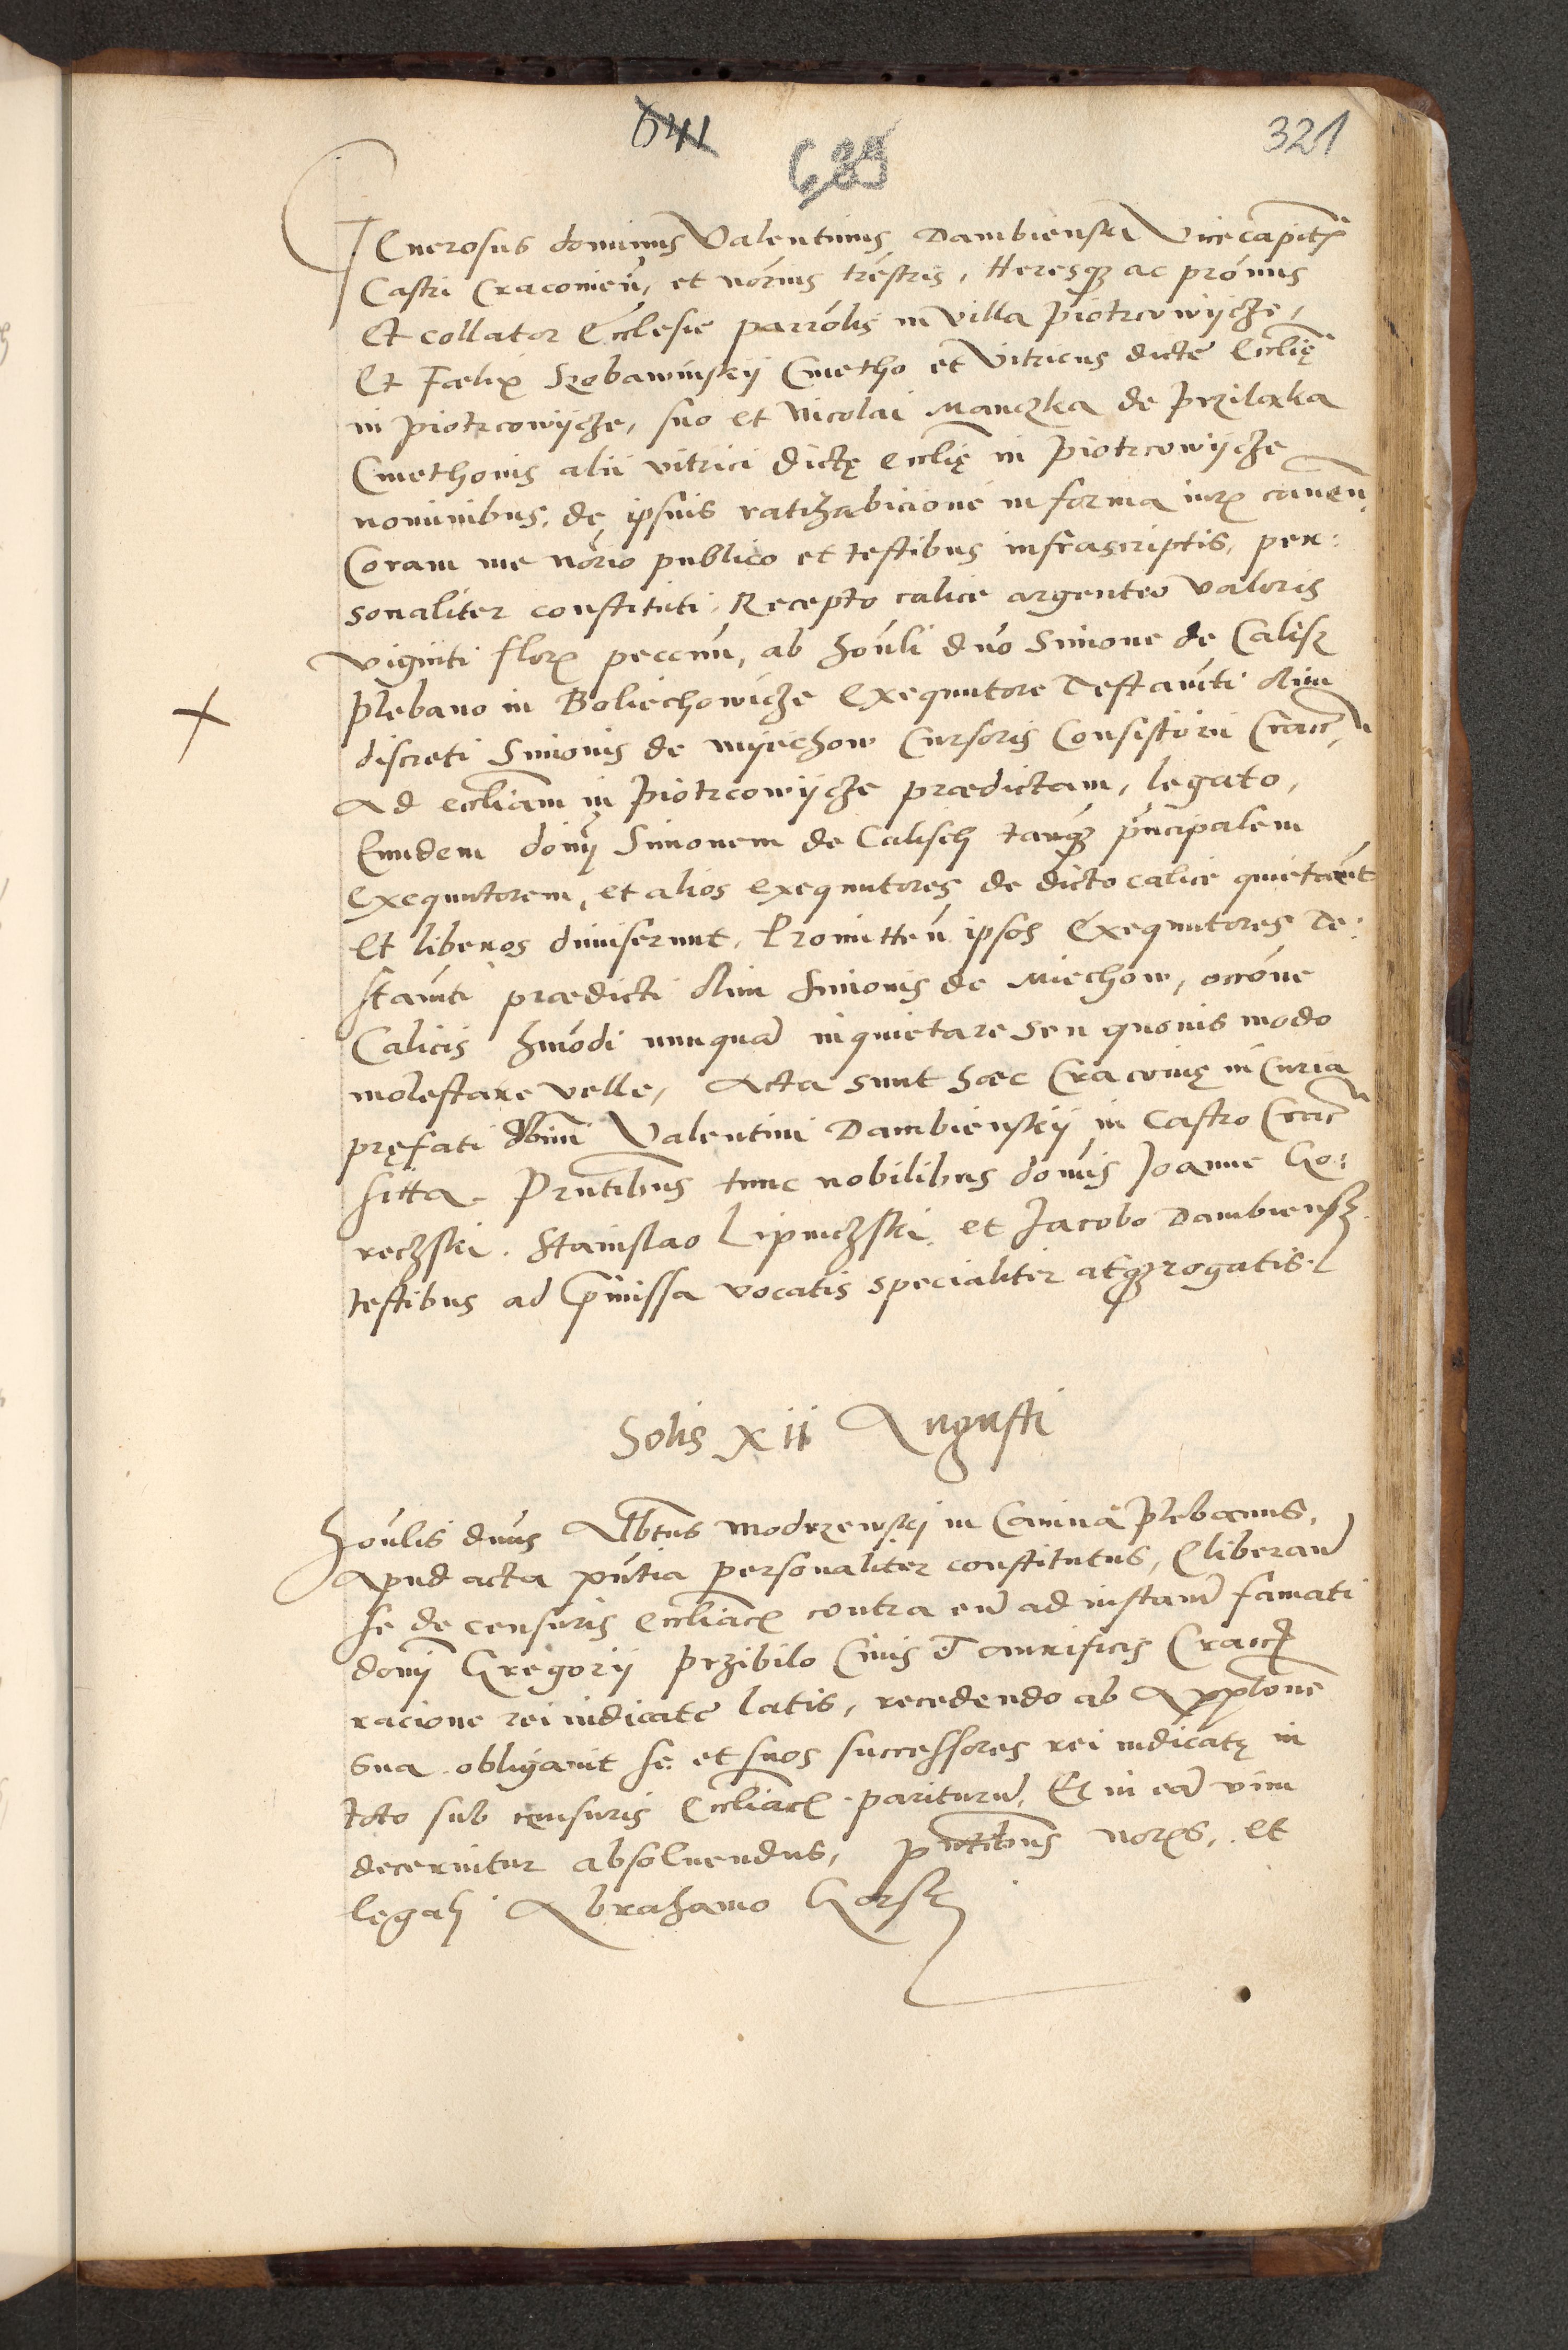 641
639
321
Generosus dominus Valentinus Dambienski Vicecapitꝰ
Castri Cracouien̄, et not̄rius tr̄estris, Heresqʒ ac pr̄onus
Et collator Ecclesie parrōlis in villa Piotrcowijcze,
Et Fœlix Skobawinskij Cmetho et vitricus dicte Eccl̄ię
in Piotrcowijcze, suo et Nicolai Manczka de Przilaka
Cmethonis alii vitrici dictę eccl̄ię in Piotrcowijcze
nominibus, de ipsius ratihabicione in forma iur̄ cauen̄
Coram me not̄rio publico et testibus infrascriptis, per:
sonaliter constituti, Recepto calice argenteo valoris
viginti flor̄ peccun̄, ab hon̄li dn̄o Simone de Calisz
Plebano in Boliechowicze Exequutore Testam̄ti olim
discreti Simonis de Myechow Cursoris Consistorii Craccn̄
Ad eccl̄iam in Piotrcowijcze prædictam, legato,
Eundem dom̄ Simonem de Calisch tanqʒ pn̄cipalem
Exequutorem, et alios exequutores de dicto calice quietar̄ut
Et liberos dimiserunt, Promitten̄ ipsos Exequutores Te:
stam̄ti prædicti olim Simonis de Miechow, occōne
Calicis hmōdi nunquā inquietare seu quouis modo
molestare velle, Acta sunt hæc Cracouię in Curia
pręfati dom̄i Valentini Dambienskij in Castro Cracn̄
sitta. Prn̄tibus tunc nobilibus domīs Joanne Go:
reczski. Stanislao Lipniczski et Jacobo Dambiensk
testibus ad p̄missa vocatis specialiter atqʒ rogatis
Solis xii Augusti
Hon̄lis dn̄us Alb̄tus Modrzewskj in Camina Plebanus,
Apud acta pn̄tia personaliter constitutus, Eliberan̄
se de censuris eccl̄iact̄ contra eū ad instan̄ famati
domī Gregorij Przibilo Ciuis et aurificis Cracc̄
racione rei iudicatę latis, recedendo ab Appl̄one
sua obligauit se et suos successores rei iudicatę in
toto sub censuris Eccl̄iact̄ pariturū, Et in eā vim
decernitur absoluendus, pn̄tibus notr̄s, et
legali Abrahamo Gorsk